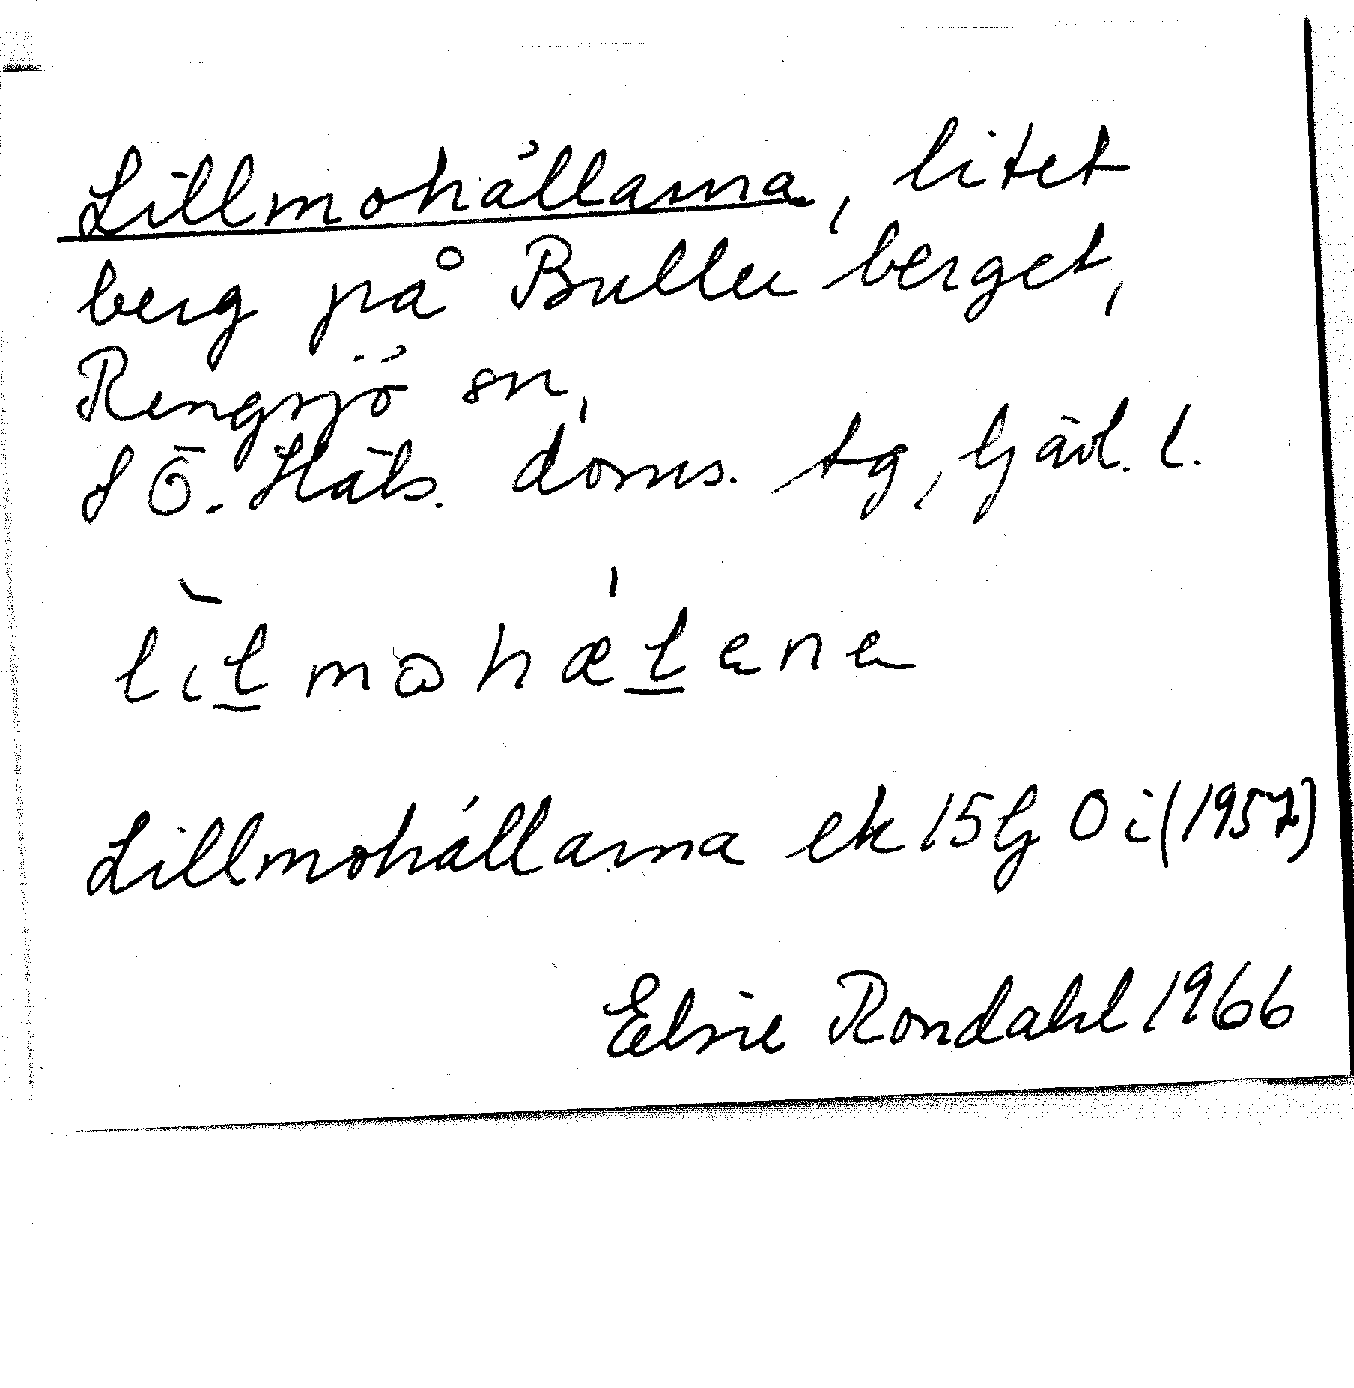 Lillmohällarna, litet
berg på Buller berget,
Rengsjö sn,
SÖ. Häls. doms. tg, Gävl. l.
Lillmohällarna ek 15G 0i (1957)
Elsie Rondahl 1966